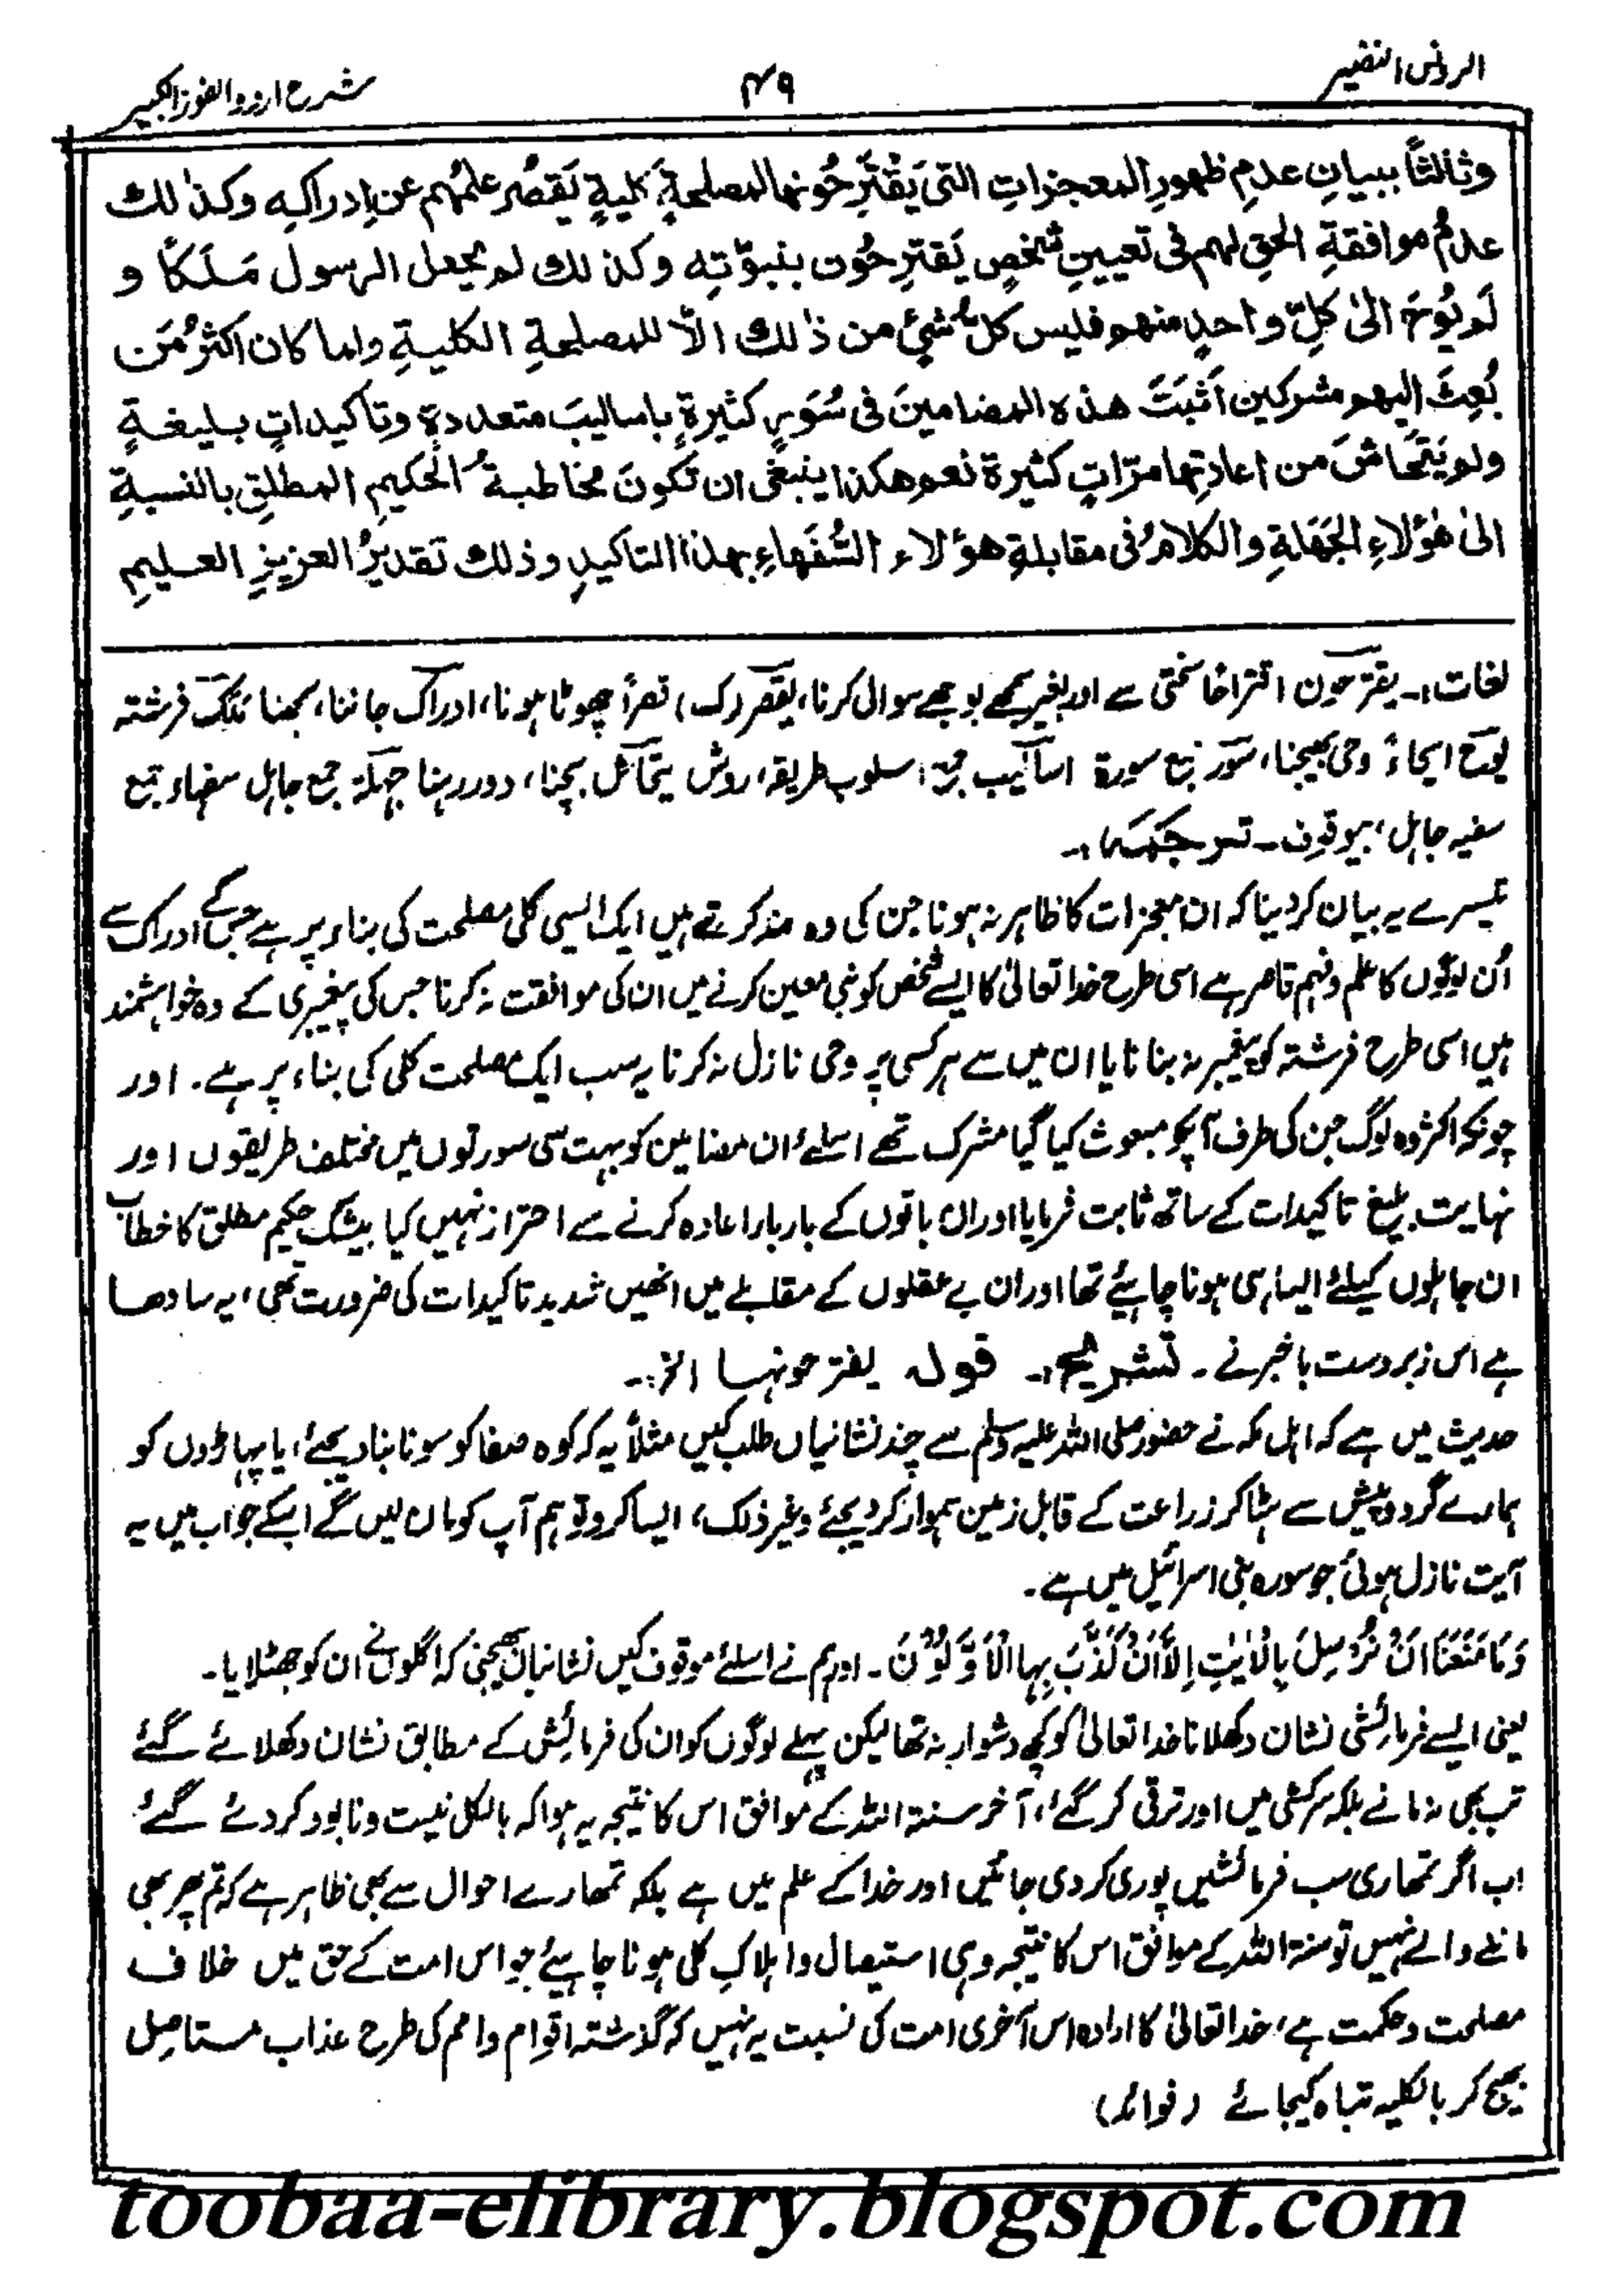 الروض النضیر
۴۹
شرح اردو الفوز الکبیر
وثالثاً ببیانِ عدمِ ظهورِ المعجزاتِ التی یَقْتَرِحُونها لمصلحةٍ کلیةٍ یَقصُر علمُهم عن إدراکِه وکذٰلك
عدمُ موافقةِ الحقِ لهم فی تعیینِ شخصٍ یَقترِحُون بنبوّتِه وکذلك لم یجعل الرسول مَلَکاً و
لَم یُوحَ الیٰ کلِّ واحدٍ منهم فلیس کلُ شیٍٔ من ذٰلك الاّ للمصلحةِ الکلیةِ ولما کان اکثرُ مَن
بُعِثَ إلیهم مشرکین اَثبَتَ هذه المضامینَ فی سُوَرٍ کثیرةٍ باسالیبَ متعددةٍ وتاکیداتٍ بلیغةٍ
ولم یَتَحَاشَ من اعادتِها مرّاتٍ کثیرة نعم هکذا ینبغی ان تکونَ مخاطبةُ الحکیمِ المطلقِ بالنسبةِ
الیٰ هٰؤلاءِ الجَهَلَةِ والکلامُ فی مقابلةِ هٰؤلاء السُّفَهاءِ بهذا التاکیدِ وذلك تقدیرُ العزیزِ العلیمِ
لغات:۔ یقترحون اقتراحًا سختی سے اور بغیر سمجھے بوجھے سوال کرنا، یقصر (ک) قصراً چھوٹا ہونا، ادراک جاننا، سمجھنا مَلَک فرشتہ
یوح ایحاءً وحی بھیجنا، سُوَر جمع سورة اسالیب جمع اسلوب طریقہ، روش یتحاش بچنا، دور رہنا جہلة جمع جاہل سفہاء جمع
سفیہ جاہل، بیوقوف۔ ترجمہ:۔
تیسرے یہ بیان کر دینا کہ ان معجزات کا ظاہر نہ ہونا جن کی وہ ضد کرتے ہیں ایک ایسی کلی مصلحت کی بناء پر ہے جس کے ادراک سے
اُن لوگوں کا علم و فہم قاصر ہے اسی طرح خدا تعالیٰ کا ایسے شخص کو نبی معین کرنے میں ان کی موافقت نہ کرنا جس کی پیغمبری کے وہ خواہشمند
ہیں اسی طرح فرشتہ کو پیغمبر نہ بنانا یا ان میں سے ہر کسی پر وحی نازل نہ کرنا یہ سب ایک مصلحت کلی کی بناء پر ہے۔ اور
چونکہ اکثر وہ لوگ جن کی طرف آپکو مبعوث کیا گیا مشرک تھے اسلئے ان مضامین کو بہت سی سورتوں میں مختلف طریقوں اور
نہایت بلیغ تاکیدات کے ساتھ ثابت فرمایا اور ان باتوں کے بار بار اعادہ کرنے سے احتراز نہیں کیا بیشک حکیم مطلق کا خطاب
ان جاہلوں کیلئے ایسا ہی ہونا چاہیئے تھا اور ان بے عقلوں کے مقابلے میں انھیں شدید تاکیدات کی ضرورت تھی، یہ سادھا
ہے اس زبردست باخبر نے۔ تشریح:۔ قولہ یقترحونہا الخ:۔
حدیث میں ہے کہ اہل مکہ نے حضور صلی اللہ علیہ وسلم سے چند نشانیاں طلب کیں مثلاً یہ کہ کوہ صفا کو سونا بنا دیجئے، یا پہاڑوں کو
ہمارے گرد و پیش سے ہٹا کر زراعت کے قابل زمین ہموار کر دیجئے وغیر ذلک، ایسا کرو تو ہم آپ کو مان لیں گے اسکے جواب میں یہ
آیت نازل ہوئی جو سورہ بنی اسرائیل میں ہے۔
وَمَا مَنَعَنَا اَنْ نُرْسِلَ بِالْاٰیٰتِ اِلَّا اَنْ کَذَّبَ بِہا الْاَوَّلُوْنَ۔ اور ہم نے اسلئے موقوف کیں نشانیاں بھیجنی کہ اگلوں نے ان کو جھٹلایا۔
یعنی ایسے فرمائشی نشان دکھلانا خدا تعالیٰ کو کچھ دشوار نہ تھا لیکن پہلے لوگوں کو ان کی فرمائش کے مطابق نشان دکھلائے گئے
تب بھی نہ مانے بلکہ سرکشی میں اور ترقی کر گئے، آخر سنة اللہ کے موافق اس کا نتیجہ یہ ہوا کہ بالکل نیست و نابود کر دئے گئے
اب اگر تمھاری سب فرمائشیں پوری کر دی جائیں اور خدا کے علم میں ہے بلکہ تمھارے احوال سے بھی ظاہر ہے کہ تم پھر بھی
ماننے والے نہیں تو سنة اللہ کے موافق اس کا نتیجہ وہی استیصال و اہلاکِ کلی ہونا چاہیئے جو اس امت کے حق میں خلاف
مصلحت و حکمت ہے، خدا تعالیٰ کا ارادہ اس آخری امت کی نسبت یہ نہیں کہ گذشتہ اقوام و امم کی طرح عذاب مستاصل
بھیج کر بالکلیہ تباہ کیجائے (فوائد)
toobaa-elibrary.blogspot.com